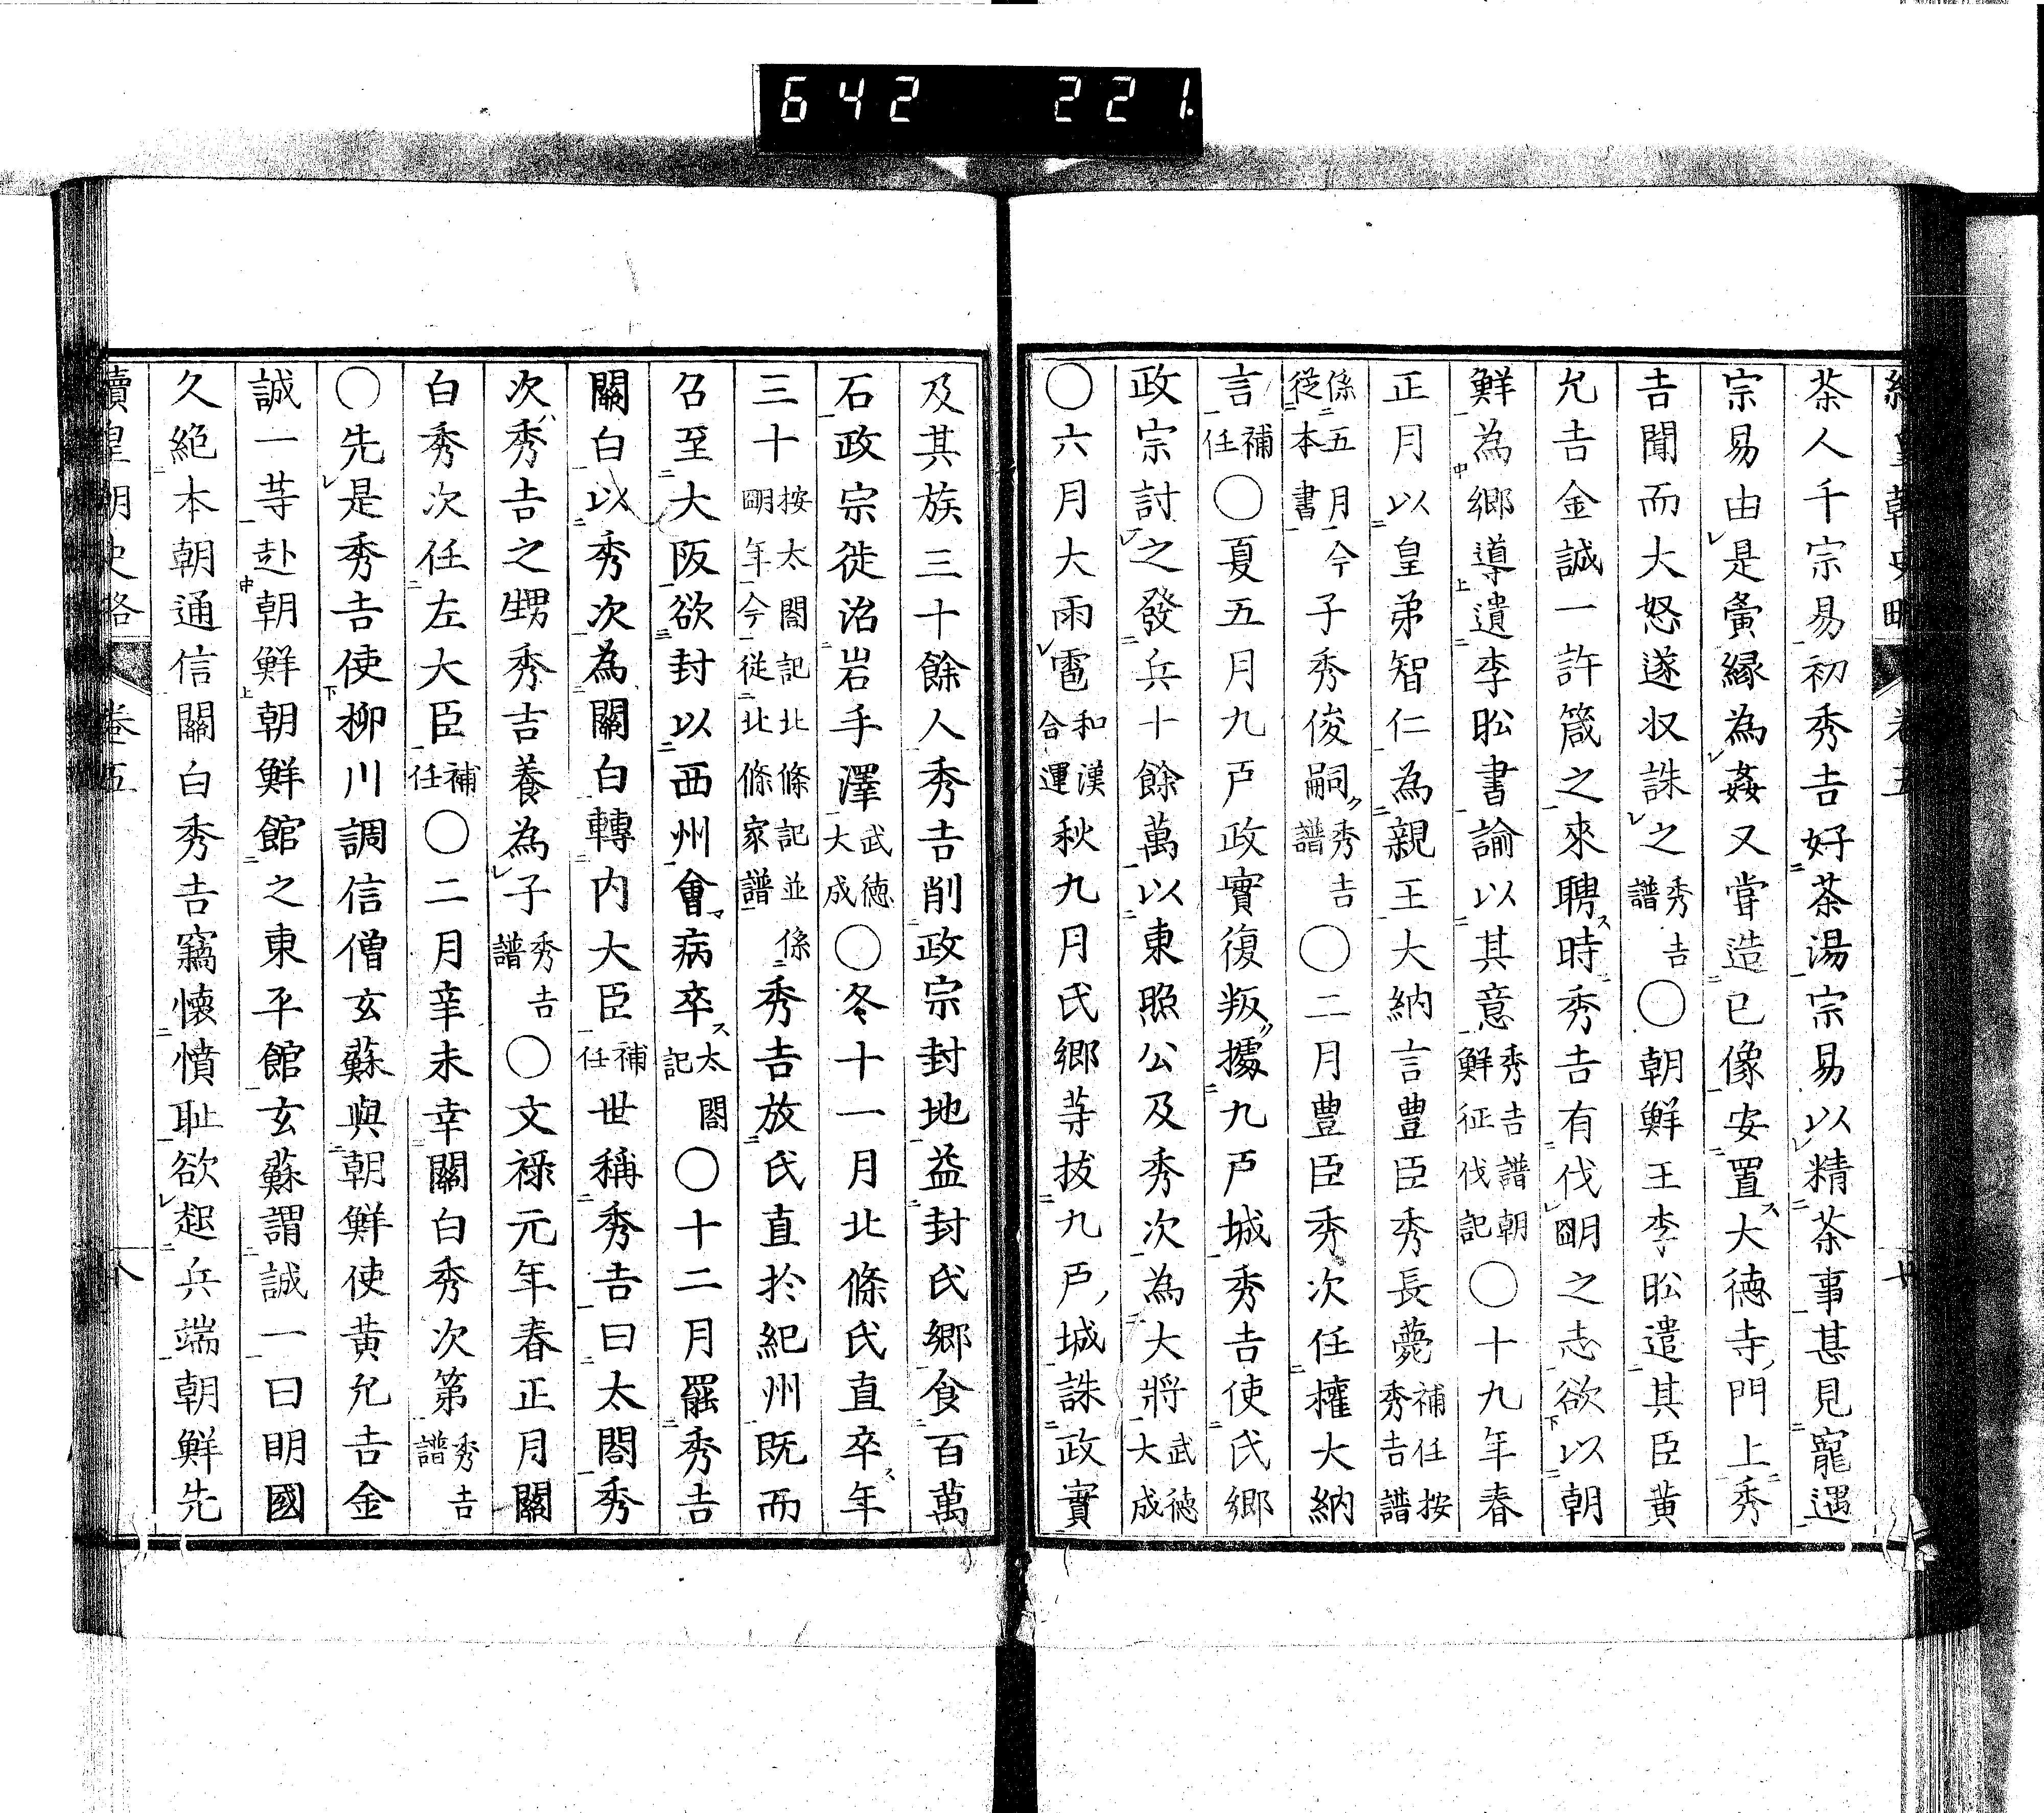 642 221.
茶人千宗易初秀吉好茶湯宗易以精茶事甚見寵遇
宗易由是夤縁為姦又嘗造已像安置大德寺門上秀
吉聞而大怒遂収誅之秀吉譜〇朝鮮王李昖遣其臣黄
允吉金誠一許箴之來聘時秀吉有伐明之志欲以朝
鮮為郷導遺李昖書諭以其意秀吉譜朝鮮征伐記〇十九年春
正月以皇弟智仁為親王大納言豊臣秀長薨補任按秀吉譜
係五月今従本書子秀俊嗣秀吉譜〇二月豊臣秀次任權大納
言補任〇夏五月九戸政實復叛據九戸城秀吉使氏郷
政宗討之發兵十餘萬以東照公及秀次為大將武德大成
〇六月大雨雹和漢合運秋九月氏郷等抜九戸城誅政實
及其族三十餘人秀吉削政宗封地益封氏郷食百萬
石政宗徙治岩手澤武德大成〇冬十一月北條氏直卒年
三十按太閤記北條記並係明年今従北條家譜秀吉放氏直於紀州既而
召至大阪欲封以西州會病卒太閤記〇十二月罷秀吉
關白以秀次為關白轉内大臣補任世稱秀吉曰太閤秀
次秀吉之甥秀吉養為子秀吉譜〇文禄元年春正月關
白秀次任左大臣補任〇二月幸未幸關白秀次第秀吉譜
〇先是秀吉使柳川調信僧玄蘇與朝鮮使黄允吉金
誠一等赴朝鮮朝鮮館之東平館玄蘇謂誠一曰明國
久絶本朝通信關白秀吉竊懐憤恥欲起兵端朝鮮先
續皇朝史略 巻五 八